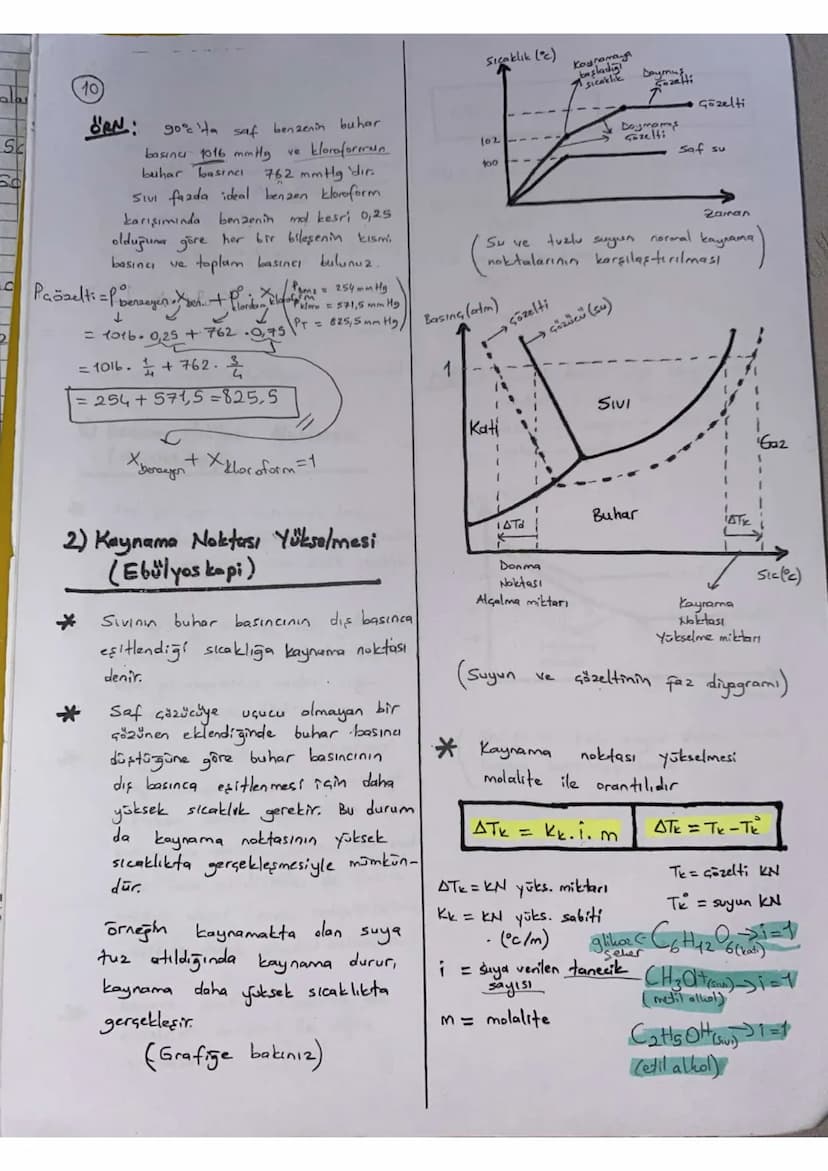 10
ÖRN: 90°C'ta saf benzenin buhar
basıncı 1016 mmHg ve kloroformun
buhar basıncı 762 mmHg'dır.
Sıvı fazda ideal benzen kloroform
karışımında benzenin mol kesri 0,25
olduğuna göre her bir bileşenin kısmi
basıncı ve toplam basıncı bulunuz.
Pçözelti = P°benzen . Xben. + P°kloroform . Xkloroform
= 254 mm Hg
= 571,5 mm Hg
PT = 825,5 mm Hg
= 1016 . 0,25 + 762 . 0,75
= 1016 . 1/4 + 762 . 3/4
= 254 + 571,5 = 825,5
+ Xkloroform = 1
2) Kaynama Noktası Yükselmesi
(Ebülyoskopi)
* Sıvının buhar basıncının dış basınca
eşitlendiği sıcaklığa kaynama noktası
denir.
* Saf çözücüye uçucu olmayan bir
çözünen eklendiğinde buhar basıncı
düştüğüne göre buhar basıncının
dış basınca eşitlenmesi için daha
yüksek sıcaklık gerekir. Bu durum
da kaynama noktasının yüksek
sıcaklıkta gerçekleşmesiyle mümkün-
dür.
Örneğin kaynamakta olan suya
tuz atıldığında kaynama durur,
kaynama daha yüksek sıcaklıkta
gerçekleşir.
(Grafiğe bakınız)
Sıcaklık (°C)
Kaynamaya
başladığı
sıcaklık
Doymuş
çözelti
Çözelti
Doymamış
çözelti
102
100
Saf su
Zaman
(Su ve tuzlu suyun normal kaynama
noktalarının karşılaştırılması)
Basınç (atm)
çözelti
çözücü (su)
1
Sıvı
Katı
Gaz
Buhar
ΔTd
ΔTk
Sıc (°C)
Donma
Noktası
Alçalma miktarı
Kaynama
Noktası
Yükselme miktarı
(Suyun ve çözeltinin faz diyagramı)
* Kaynama noktası yükselmesi
molalite ile orantılıdır
ΔTk = Kk . i . m
ΔTk = Tk - Tk°
Tk = çözelti KN
ΔTk = KN yüks. miktarı
Tk° = suyun KN
Kk = KN yüks. sabiti
. (°C/m)
glikoz
şeker
C6H12O6(katı) → i = 1
i = suya verilen tanecik
sayısı
CH3OH(sıvı) → i = 1
(metil alkol)
m = molalite
C2H5OH(sıvı) → i = 1
(etil alkol)